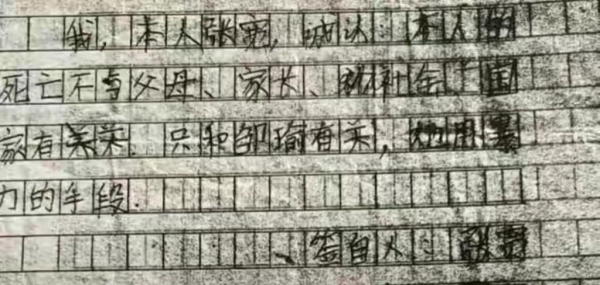 我,本人张宽,诚认:本人的
死亡不与父母、家长、和社会、国
家有关系.只和邵瑜有关,她用暴
力的手段.
签自人:张宽